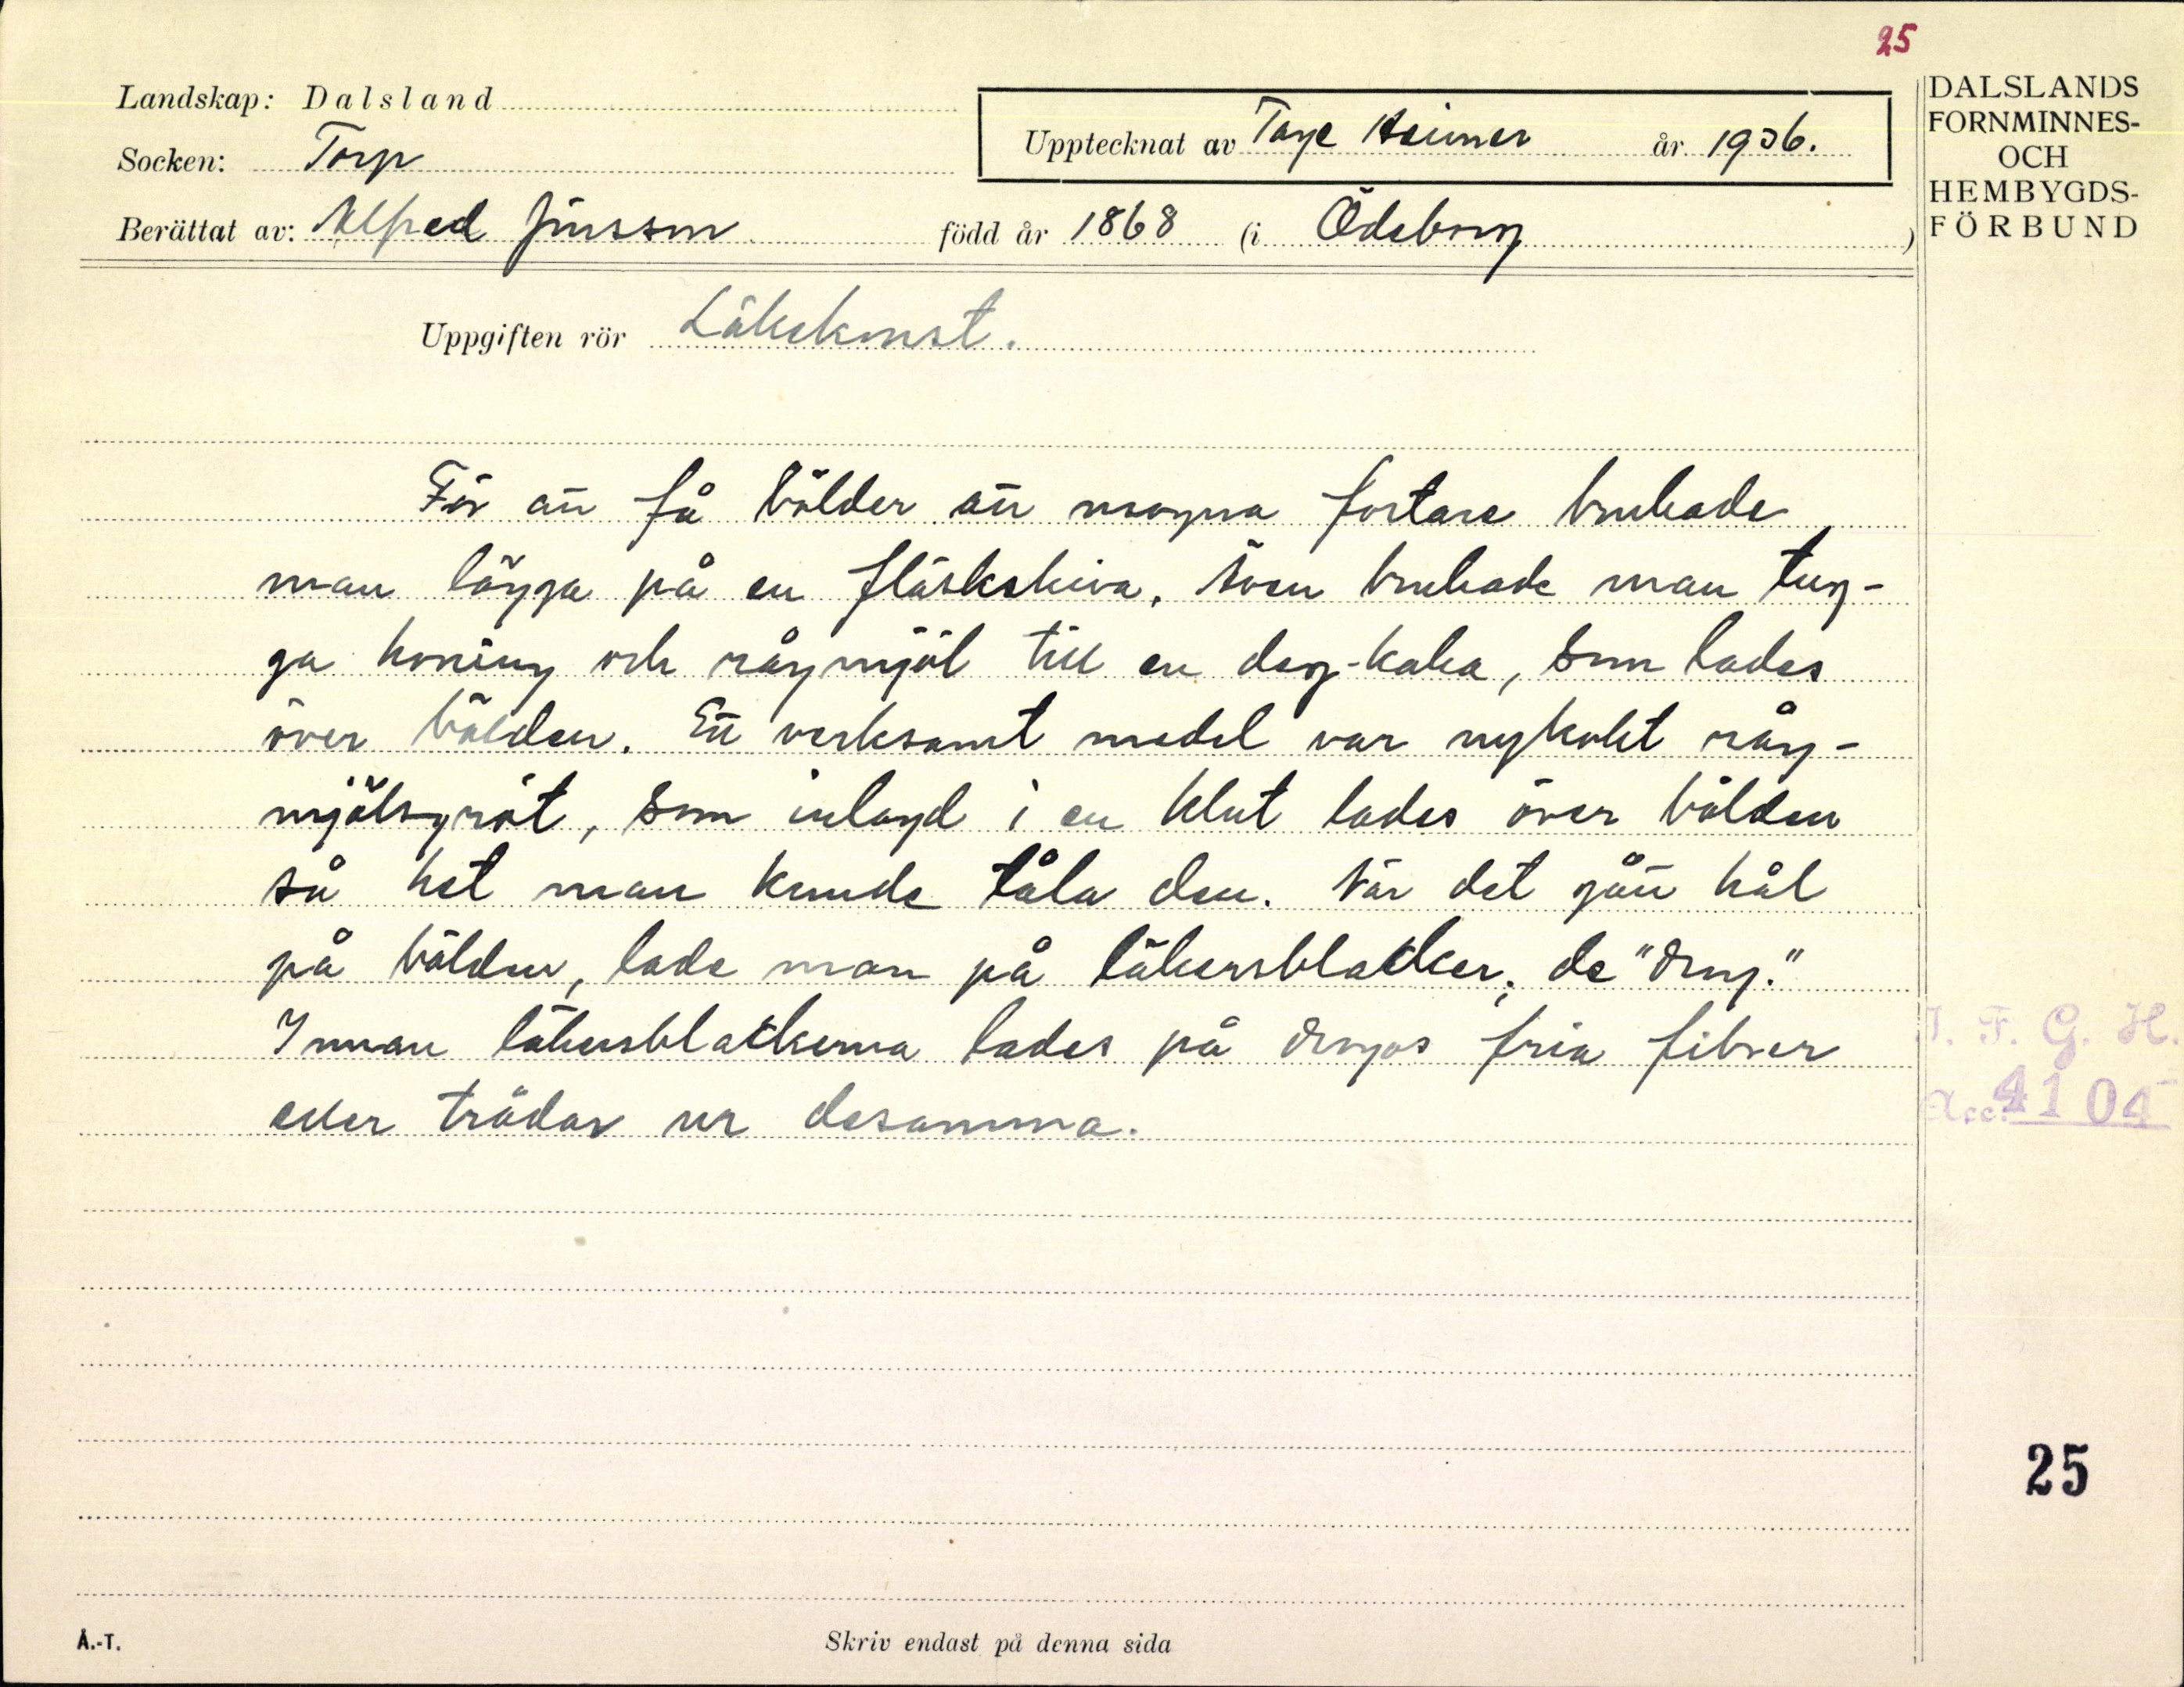 25
Landskap: Dalsland
Socken: Torp
Upptecknat av Tage Heimer år 1936.
Berättat av: Alfred Jonsson född år 1868 (i Ödeborg)
DALSLANDS
FORNMINNES-
OCH
HEMBYGDS-
FÖRBUND
Uppgiften rör Läkekonst.
För att få bölder att mogna fortare brukade
man lägga på en fläskskiva. Även brukade man tug-
ga honing och rågmjöl till en deg-kaka, som lades
över bölden. Ett verksamt medel var nykokt råg-
mjölsgröt, som inlagd i en klut lades över bölden
så het man kunde tåla den. När det gått hål
på bölden, lade man på läkersblacker; de "drog."
Innan läkersblackerna lades på drogos fria fibrer
eller trådar ur desamma.
I. F. G. H.
Acc. 4104
25
Å.-T.
Skriv endast på denna sida